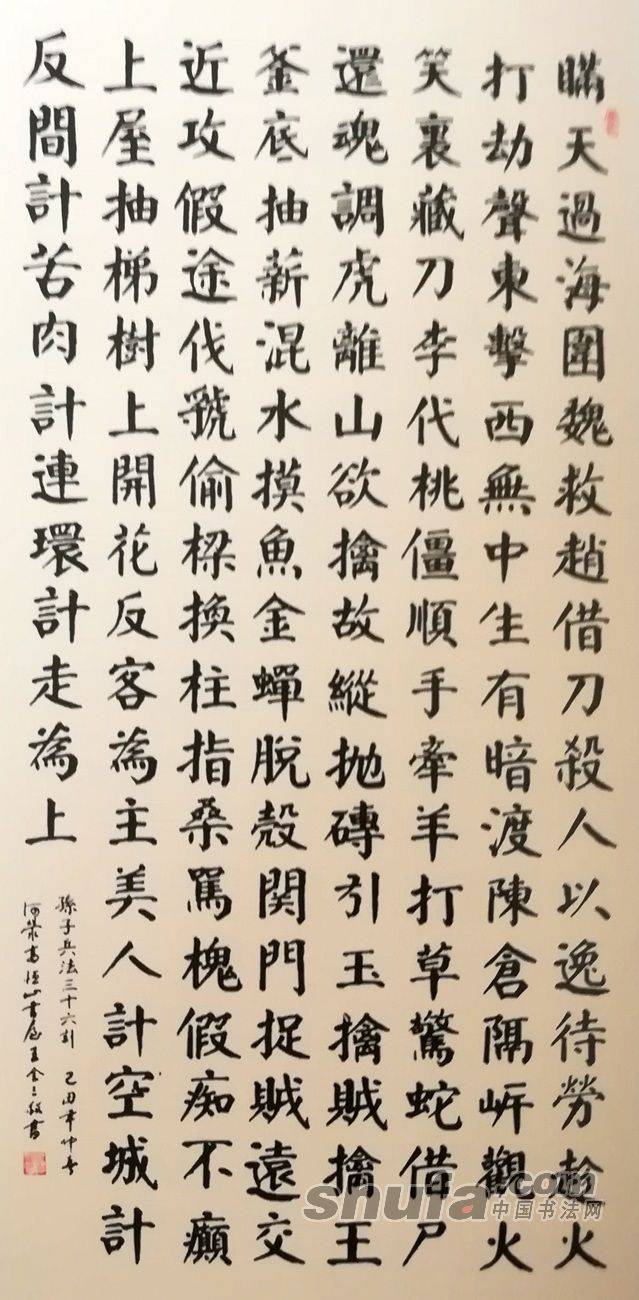 瞞天過海圍魏救趙借刀殺人以逸待勞趁火
打劫聲東擊西無中生有暗渡陳倉隔岍觀火
笑裏藏刀李代桃僵順手牽羊打草驚蛇借尸
還魂調虎離山欲擒故縱抛磚引玉擒賊擒王
釜底抽薪混水摸魚金蟬脫殼関門捉賊遠交
近攻假途伐虢偷梁換柱指桑罵槐假痴不癲
上屋抽梯樹上開花反客為主美人計空城計
反間計苦肉計連環計走為上
孫子兵法三十六計 年仲春
書
shufa.com
中国书法网